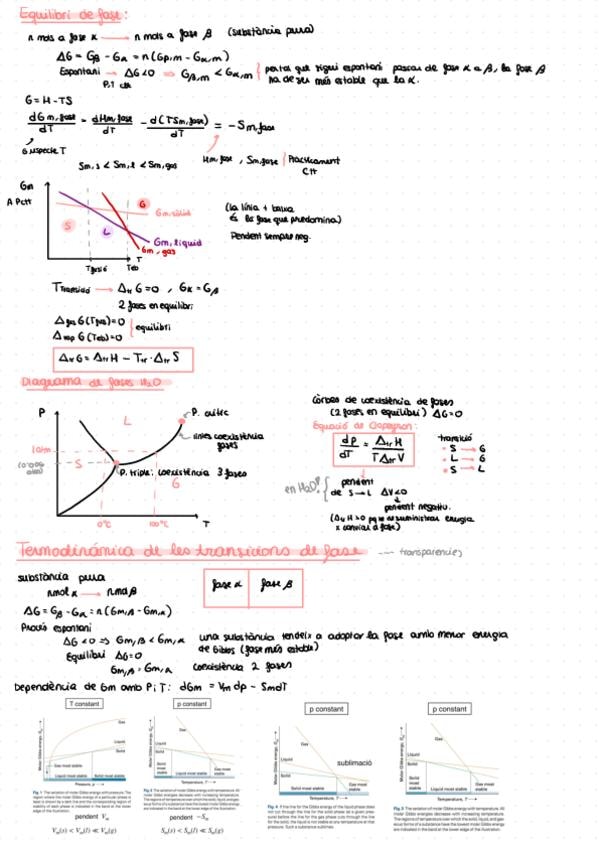 Equilibri de fase:
n mols a fase α → n mols a fase β (substància pura)
ΔG = Gβ - Gα = n(Gβ,m - Gα,m)
Espontani → ΔG<0 ⇒ Gβ,m < Gα,m { perquè sigui espontani passar de fase α a β, la fase β
P,T ctt
ha de ser més estable que la α.
G = H - TS
dGm,fase/dT = dHm,fase/dT - d(TSm,fase)/dT = - Sm,fase
G respecte T
Sm,s < Sm,l < Sm,gas
Hm,fase, Sm,fase { Pràcticament
Ctt
Gm
A Pctt
S
L
G
Gm,sòlid
Gm,líquid
Gm,gas
Tfusió
Teb
T
(La línia + baixa
és la fase que predomina)
Pendent sempre neg.
Ttransició → ΔtrG = 0, Gα = Gβ
2 fases en equilibri
ΔfusG(Tfus)=0
ΔvapG(Teb)=0
} equilibri
ΔtrG = ΔtrH - Ttr·ΔtrS
Diagrama de fases H2O
P
L
P. crític
línies coexistència
fases
1 atm
(0'006
atm)
S
P. triple: coexistència 3 fases
G
0°C
100°C
T
Corbes de coexistència de fases
(2 fases en equilibri) ΔG=0
Equació de Clapeyron:
dp/dT = ΔtrH/TΔtrV
transició
S → G
L → G
S → L
en H2O! {
pendent
de S→L ΔV<0
pendent negatiu.
(ΔtrH>0 pq se subministra energia
x canviar d fase)
Termodinàmica de les transicions de fase --- transparències
substància pura
nmol α → nmol β
fase α | fase β
ΔG = Gβ - Gα = n(Gm,β - Gm,α)
Procés espontani
ΔG<0 ⇒ Gm,β < Gm,α una substància tendeix a adoptar la fase amb menor energia
de Gibbs (fase més estable)
Equilibri ΔG=0
Gm,β = Gm,α coexistència 2 fases
Dependència de Gm amb P i T: dGm = Vm dp - SmdT
T constant
p constant
p constant
p constant
Gas
Liquid
Solid
Gas most stable
Liquid most stable
Solid most stable
Pressure, p
Temperature, T
sublimació
pendent Vm
Vm(s) < Vm(l) ≪ Vm(g)
pendent -Sm
Sm(s) < Sm(l) ≪ Sm(g)